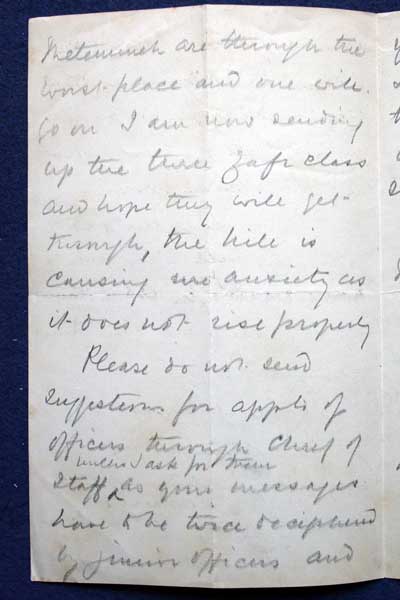 Metemmeh are through the
worst place and one will
go on I am now sending
up the three Zafr class
and hope they will get
through, the Nile is
causing me anxiety as
it does not rise properly
Please do not send
suggestions for appts of
officers through Chief of
unless I ask for them
Staff as your messages
have to be twice deciphered
by junior officers and